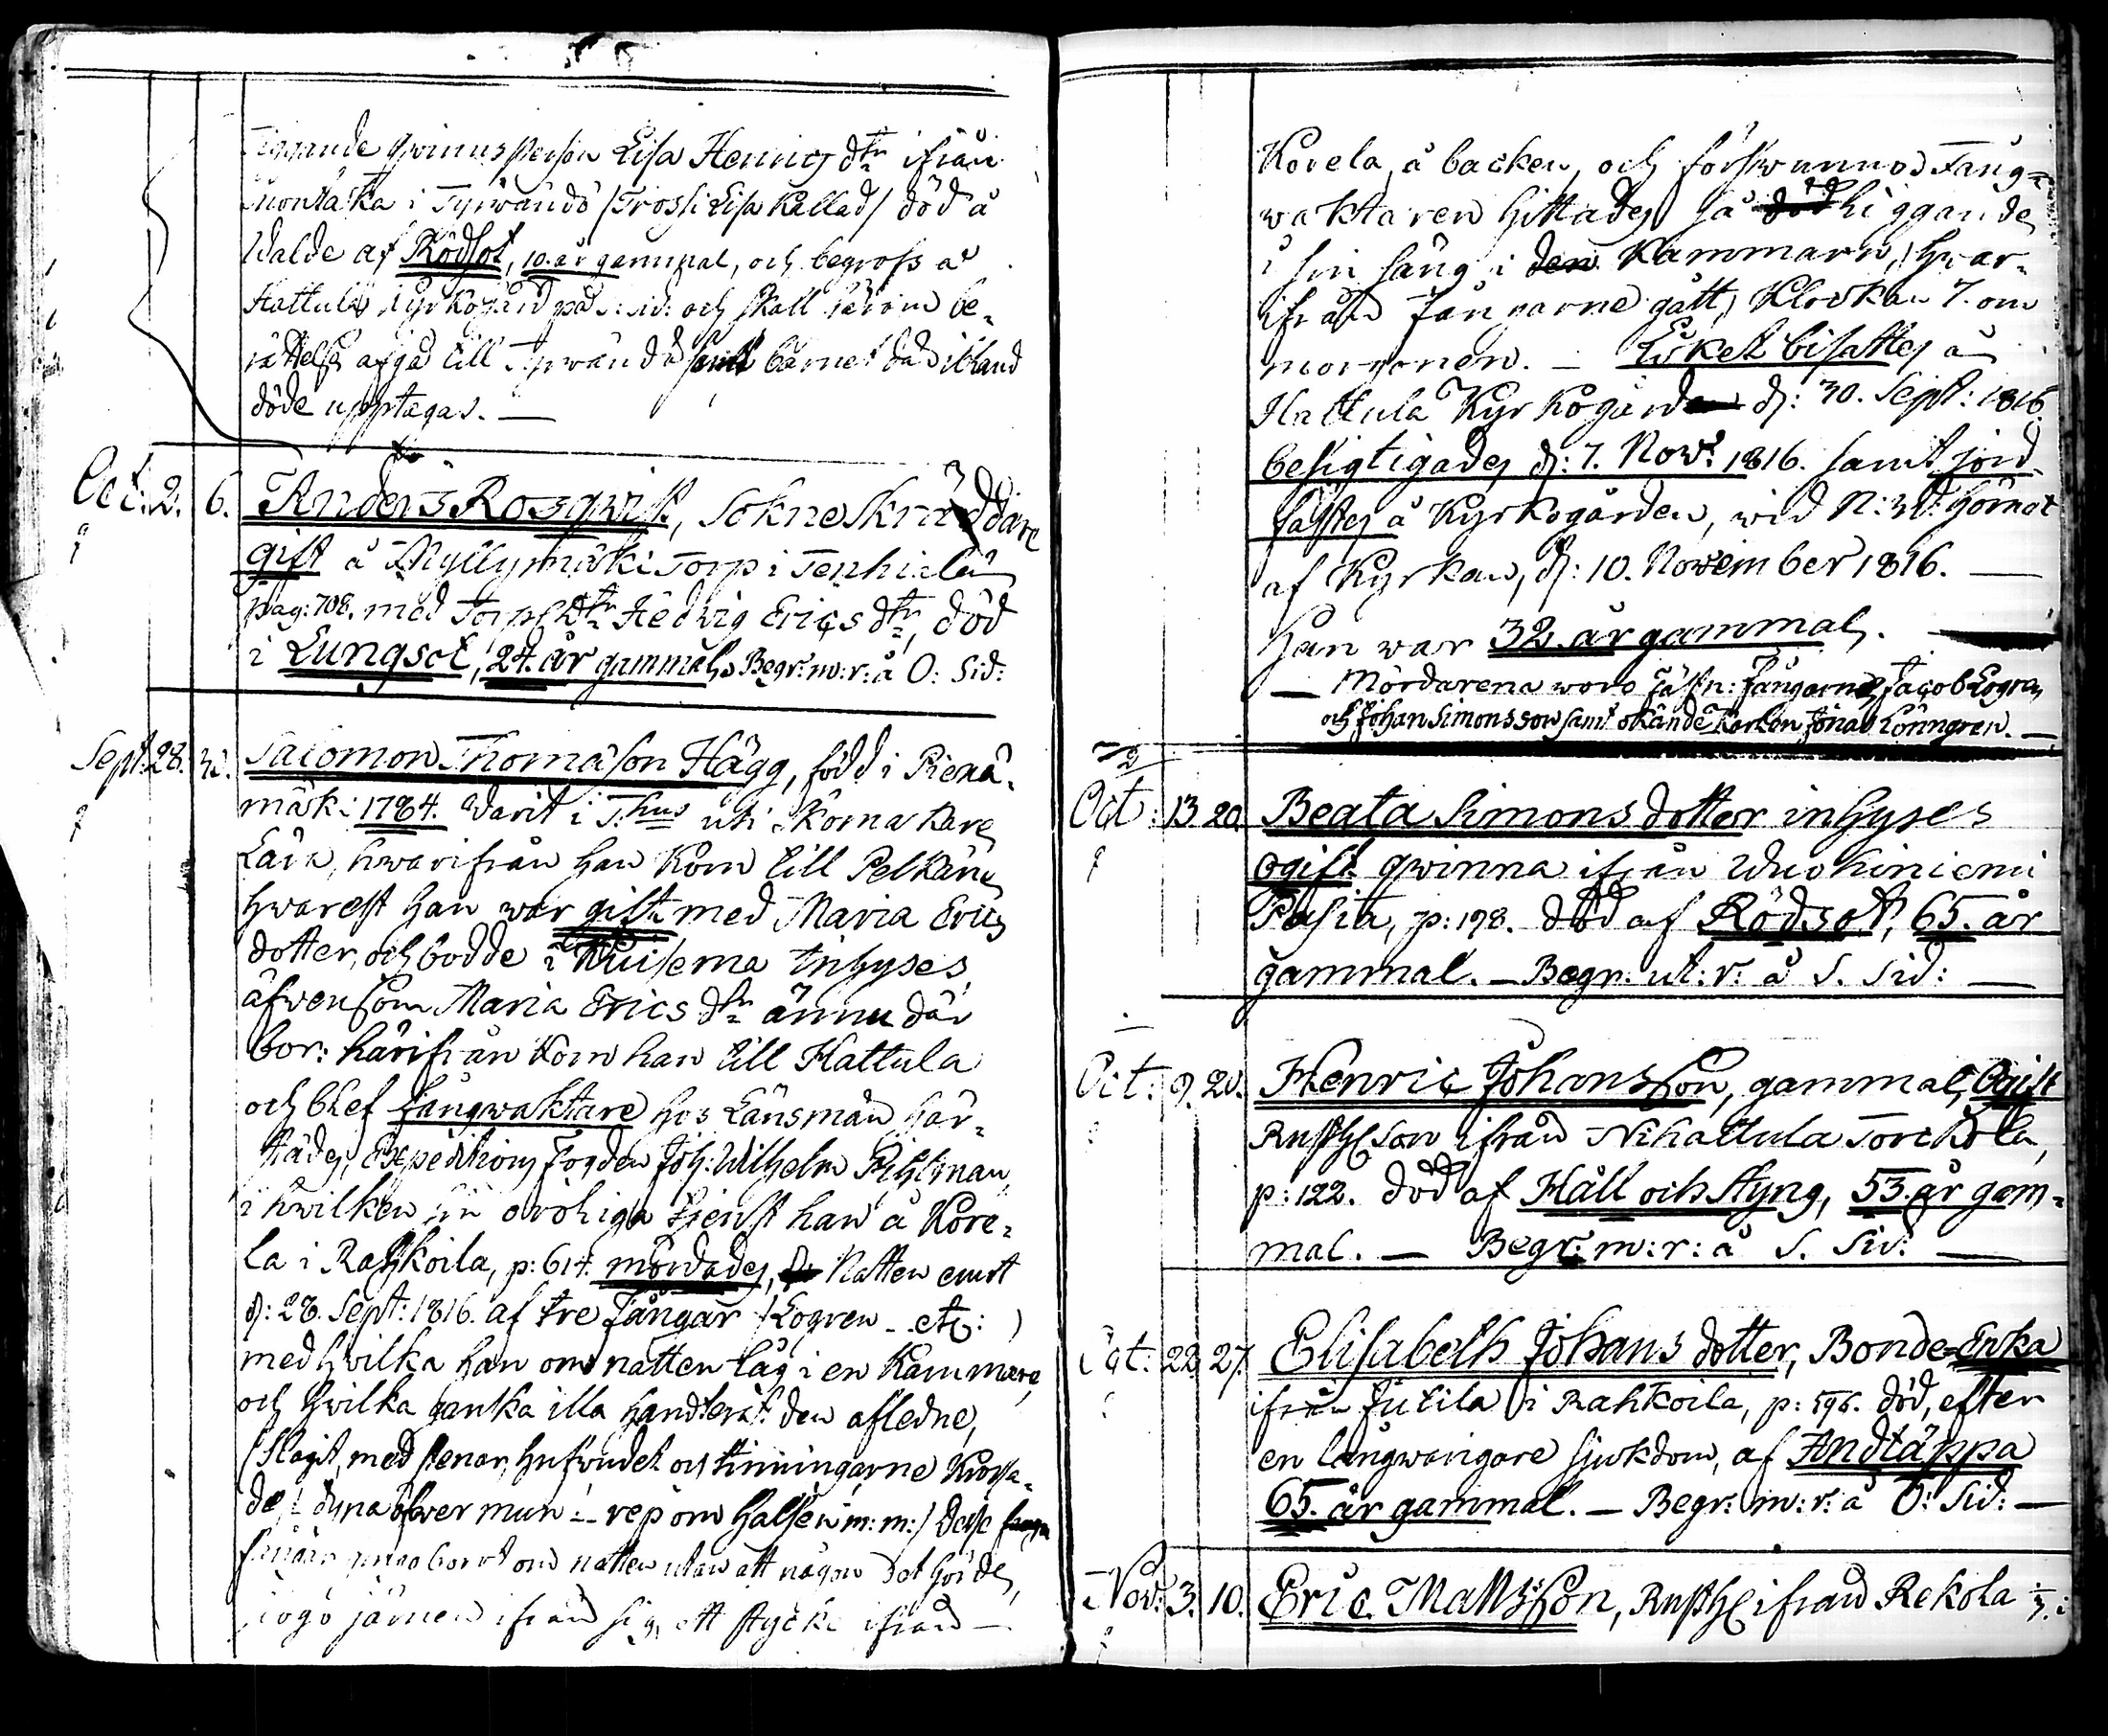 Tiggande qwinnsperson Lisa Henrics dtr ifrån
i Tyrwändö /Trossi Lisa Kallad/ död å
Walde af Rödsot, 10. år gammal, och begrofs å
Hattula Kyrkogård på S: sid: och skall härom be-
rättelse afgå till Tyrwändö samt barnet bland
döde upptagas. —
Oct: 2. 6. Anders Rosqwist, Sokneskräddare
gift å Myllymäki Torp i Tenhiala
pag: 708. med Torp. Dtr Hedvig Erics dtr, död
i Lungsot, 24. år gammal, Begr: m: r: å O: Sid:
Sept: 28. 30. Salomon Thomasson Hägg, född i Pienä-
mäki 1784. Warit i T.hus uti Skomakare
Lära, hwarifrån han kom till Pelkäne
hwarest han war gift med Maria Erics
dotter, och bodde i Kuisema Inhyses,
äfwensom Maria Erics dtr ännu där
bor: härifrån kom han till Hattula
och blef fångwaktare hos Länsman här-
städes, Expeditions Fogden Joh: Wilhelm Pihlman,
i hwilken sin oroliga tjenst han å Kore-
la i Rahkoila, p: 614. mördades, Natten emot
d: 28. Sept: 1816. af tre Fångar /Logren - etc: )
med hwilka han om natten låg i en Kammare
och hwilka ganska illa handterat den aflidne,
(Slagit, med stenar, hufwudet och tinningarne krossa-
de, dyna öfwer mun - rep om halsen m: m:) Desse
fångar bort om natten utan att någon det hörde,
togo järnen ifrån sig, ett stycke ifrån —
Korela, å backen, och förswunno. Fång-
waktaren hittades så död liggande
i sin säng i den Kammarn, hwar-
ifrån fångarne gått, Klockan 7. om
morgonen. — Liket bisattes å
Hattula Kyrkogård d: 30. Sept: 1816.
besigtigades d: 7. Nowr 1816. samt jord-
fästes å Kyrkogården, wid N: W: hörnet
af Kyrkan, d: 10. November 1816. —
Han war 32. år gammal. —
— Mördarena woro Fästn: Fångarne Jacob Logren
och Johan Simonsson samt okände Karlen Jonas Lönngren. —
Oct: 13 20. Beata Simons dotter inhyses
ogift qwinna ifrån Wuohiniemi
Pasia, p: 198. död af Rödsot, 65. år
gammal. — Begr: ut: r: å S. Sid: —
Oct: 9. 20. Henric Johansson, gammal, Ogift
Rusth: Son ifrån Nihattula Torckola,
p: 122. död af Håll och Styng, 53. år gam-
mal. — Begr: m: r: å S. Sid: —
Oct: 22. 27. Elisabeth Johans dotter, Bonde-Enka
ifrån Jutila i Rahkoila, p: 596. död, efter
en långwarigare sjukdom, af Andtäppa
65. år gammal. — Begr: m: r: å O: Sid: —
Nov: 3. 10. Eric Matsson, Rusth: ifrån Rekola